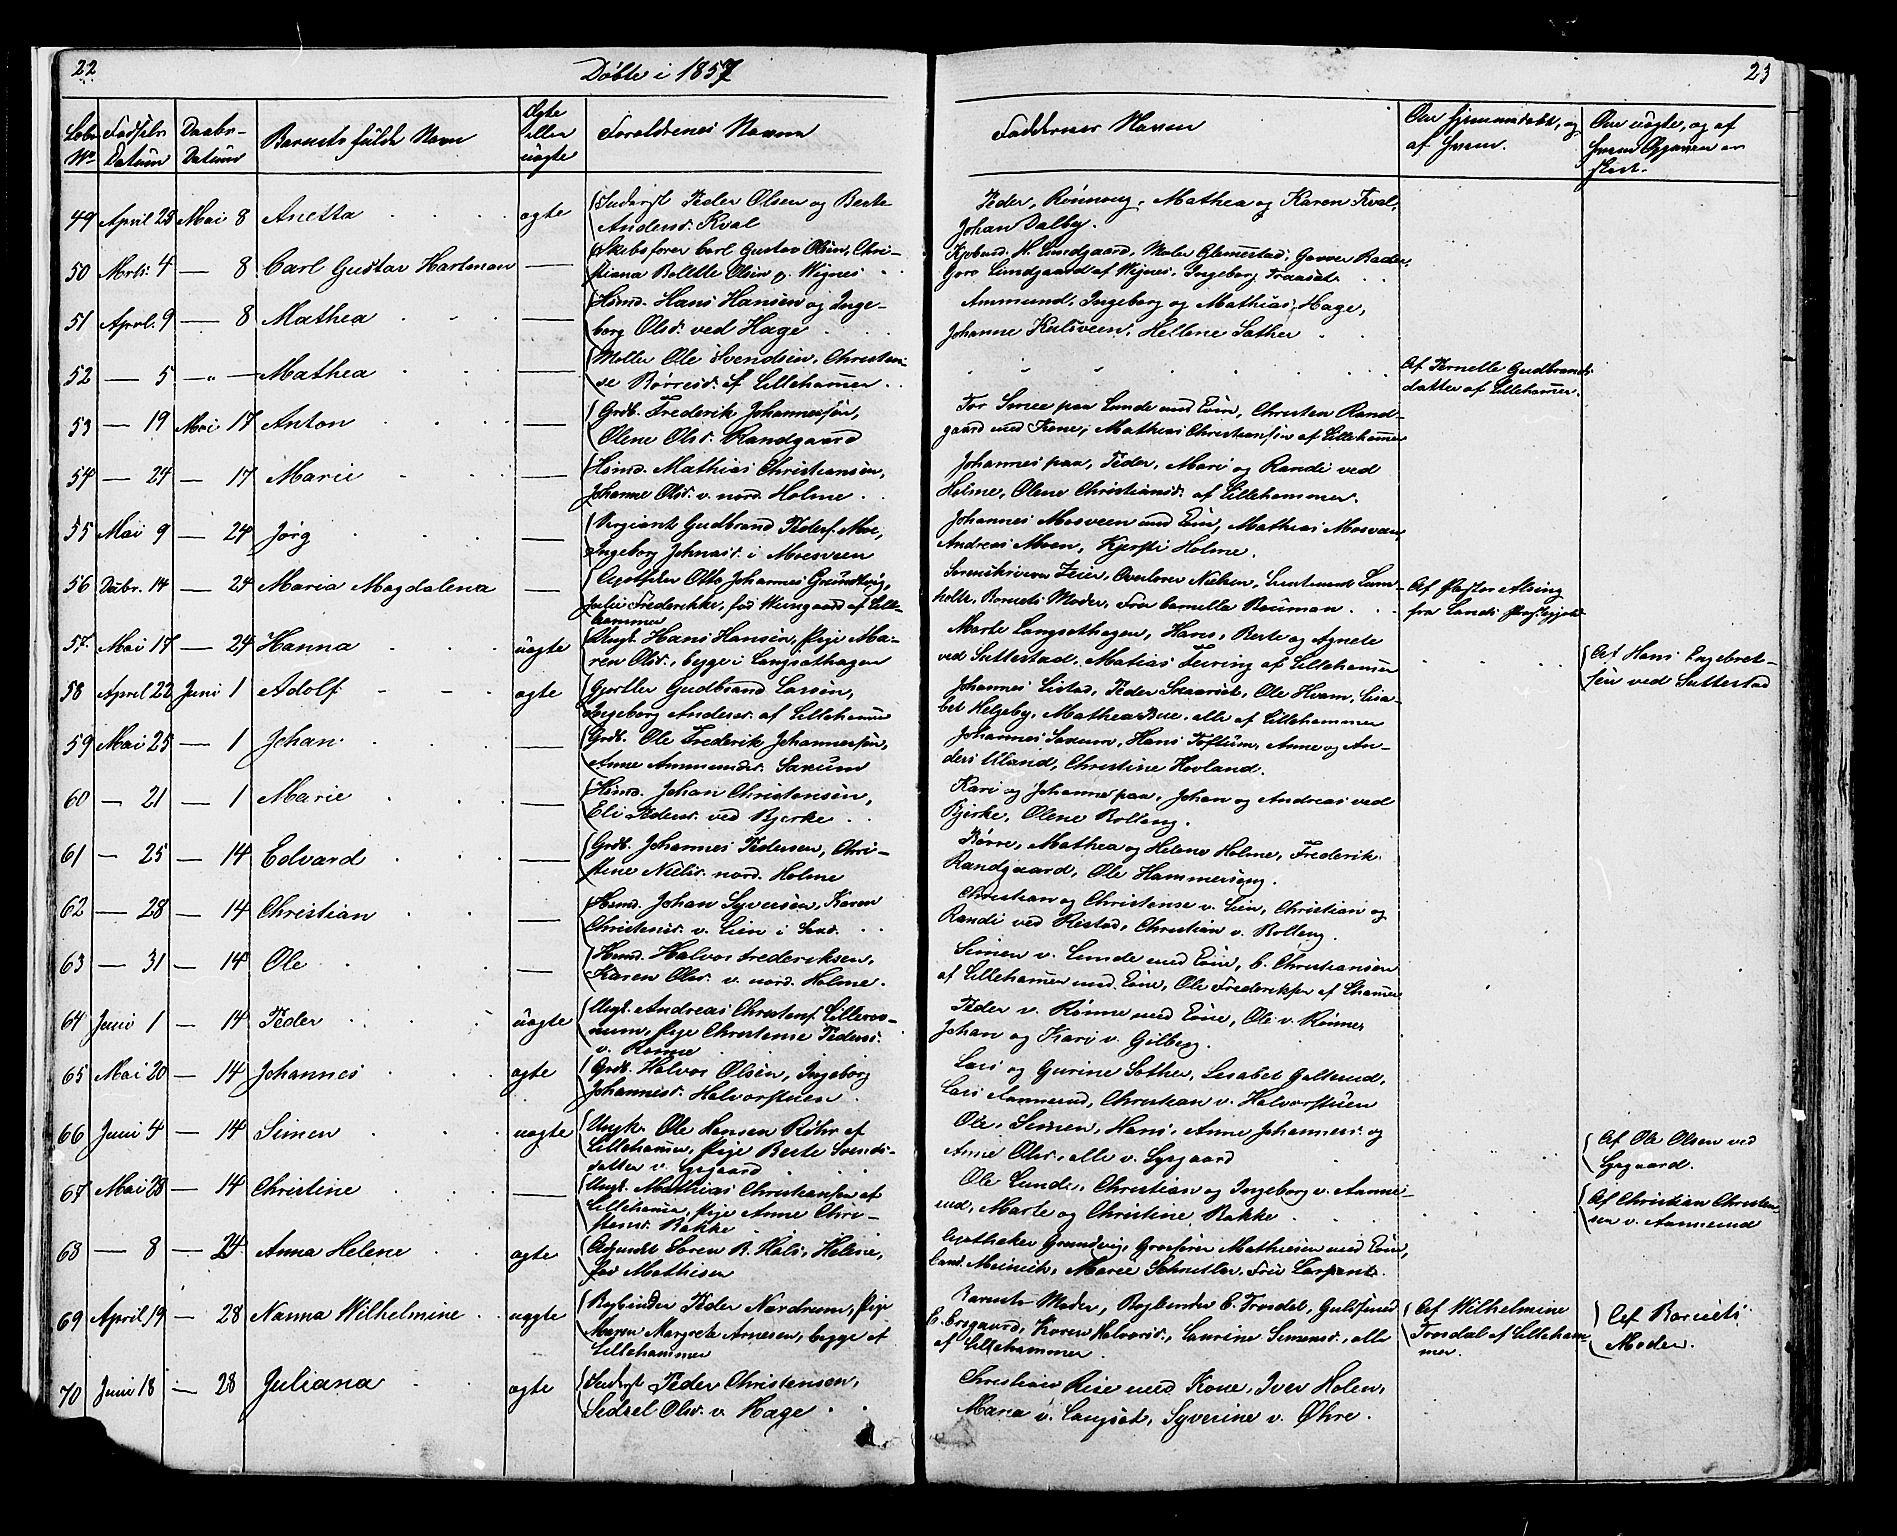 22
Döbte i 1857
23
Löbe No
Fødsels Datum
Daabs-Datum
Barnets fulde Navn
Ægte eller uægte
Forældrenes Navne
Faddernes Navne
Om hjemmedøbt, og af hvem.
Om uægte, og af hvem Opgaven er skeet.
49 April 25 Mai 8 Anetta ægte Peder Olsen og Berte
Anders. Kval
Peder, Rønnoug, Mathea og Karen Kval,
Johan Dalby.
50 Mrts. 4 — 8 Carl Gustav Hartman — Skibsfører Carl Gustav Olsen, Chri-
stiana Bolette Olsen p. Vignes
Kjøbmd. H. Lundgaard, Maler Glamestad, Garver Bader,
Goro Lundgaard af Vignes, Ingeborg Fraaset.
51 Aprl. 9 — 8 Mathea — Husmd. Hans Hansen og Inge-
borg Olsd. ved Hage
Ammund, Ingeborg og Mathias Hage,
Johanne Kulsveen, Hellene Sæther
52 — 5 — " — Mathea — Møller Ole Svendsen, Christen-
se Børresd. af Lillehamer.
Af Pernelle Gudbrands
datter af Lillehamer.
53 — 19 Mai 17 Anton — Grdb. Frederik Johannesen,
Olene Olsd. Randgaard
Tor Sorue paa Lunde med Qvin, Christen Rand-
gaard med Kone, Mathias Christiansen af Lillehamer
54 — 24 — 17 Marie — Husmd. Mathias Christiansen,
Johanne Olsd. v. nord. Holme
Johannes paa, Peder, Mari og Randi ved
Holme, Olene Christiansd. af Lillehammer.
55 Mai 9 — 24 Jörg — Sergiant Gudbrand Peders. Moe,
Ingeborg Johnasd. i Moesveen
Johannes Mosveen med Qvin, Mathias Mosveen
Andreas Moen, Kjersti Holme.
56 Debr. 14 — 24 Maria Magdalena — Apotheker Otto Johannes Grundtvig,
Julie Frederikke, fød Wimgaard af Lille-
hammer
Sorenskriver Feier, Overlærer Nielsen, Lieutenant Lum-
holtz, Barnets Moder, Fru Camilla Bouman
Af Pastor Alsing
fra Lands Præstegjeld
57. Mai 17 — 24 Hanna uægte Ungk. Hans Hansen, Pige Ma-
ren Olsd., begge i Langsæthagen
Marte Langsæthagen, Hans, Berte og Agnete
ved Suttestad, Matias Feiring af Lillehamer
Af Hans Engebret-
sen ved Suttestad
58 April 22 Juni 1 Adolf ægte Gjørtler Gudbrand Larsen,
Ingeborg Andersd. af Lillehamer
Johannes Listad, Peder Skaarset, Ole Hvam, Lisa-
bet Helgeby, Mathea Bue, alle af Lillehammer
59 Mai 25 — 1 Johan — Grdb. Ole Frederik Johannesen,
Anne Ammundsd. Saxum
Johannes Saxum, Hans Toftum, Anne og An-
ders Uland, Christine Hovland.
60 — 21 — 1 Marie — Husmd. Johan Christensen,
Eli Pedersd. ved Bjerke
Kari og Johanne paa, Johan og Andreas ved
Bjerke, Olene Rolleng.
61 — 25 — 14 Edvard — Grdb. Johannes Pedersen, Chri-
stine Nielsd. nord. Holme
Børre, Mathea og Helene Holme, Frederik
Randgaard, Ole Hammerseng.
62 — 28 — 14 Christian — Husmd. Johan Syversen, Karen
Christensd. v. Lien i Sors.
Christian og Christense v. Lien, Christian og
Randi ved Ristad, Christian v. Rolleng
63 — 31 — 14 Ole — Husmd. Halvor Frederiksen,
Karen Olsd. v. nord. Holme.
Simen v. Lunde med Qvin, C. Christiansen
af Lillehamer med Qvin, Ole Frederiksen af Lhamer
64 Juni 1 — 14 Peder uægte Ungk. Andreas Christens. Lillero-
num, Pige Christense Pedersd.
v. Rønne
Peder v. Rønne med Qvin, Ole v. Rønne,
Johan og Kari v. Gilberg.
65 Mai 20 — 14 Johannes ægte Grdb. Halvor Olsen, Ingeborg
Johannesd. Halvorstuen
Lars og Gurine Sæther, Lisabet Galterud,
Lars Aannerud, Christian v. Halvorstuen
66 Juni 4 — 14 Simen uægte Ungk. Ole Hansen Röhr af
Lillehamer, Pige Berte Svends-
datter v. Lysgaard
Ole, Simen, Hans, Anne Johannesd. og
Anne Olsd., alle v. Lysgaard
Af Ole Olsen ved
Lysgaard.
67 Mai 28 — 14 Christine — Ungk. Mathias Christiansen af
Lillehamer, Pige Anne Chri-
stensd. Bakke
Ole Lunde, Christian og Ingeborg v. Aanne-
rud, Marte og Christine Bakke
Af Christian Christen-
sen v. Aannerud
68 — 8 — 24 Anna Helene ægte Søren R. Hals, Helene,
fød Mathisen
Apotheker Grundvig, Grosserer Mathiesen med Qvin,
Cand. Meinich, Marie Schnitler, Frue Larpent.
69 April 19 — 28 Nanna Wilhelmine uægte Bogbinder Peder Nordrum, Pige
Maren Margrete Arnesen, begge af
Lillehammer
Barnets Moder, Bogbinder C. Trosdal, Guldsmed
E. Ersgaard, Karen Halvorsd., Laurine Simensd., alle
af Lillehammer.
Af Wilhelmine
Trosdal af Lilleham-
mer.
Af Barnets
Moder.
70 Juni 18 — 28 Juliana ægte Peder Christensen,
Sedsel Olsd. v. Hage
Christian Rise med Kone, Iver Holen,
Maria v. Langset, Syverine v. Øhre.